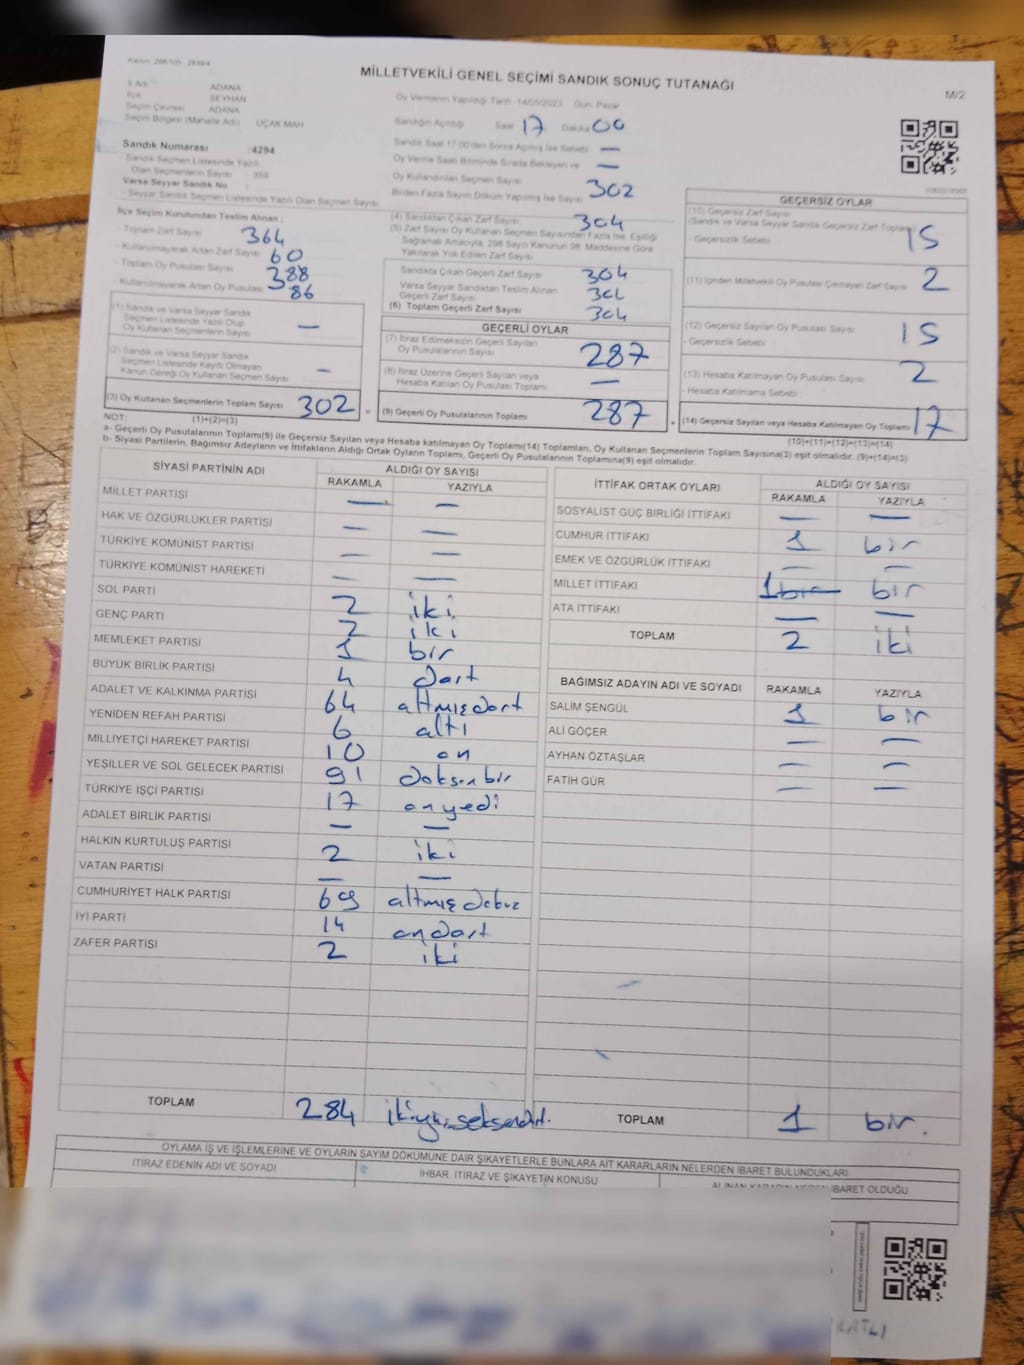 MİLLETVEKİLİ GENEL SEÇİMİ SANDIK SONUÇ TUTANAĞI
M/2
İl Adı ADANA
İlçe SEYHAN
Seçim Çevresi ADANA
Seçim Bölgesi (Mahalle Adı) UÇAK MAH
Oy Vermenin Yapıldığı Tarih :14/05/2023 Gün: Pazar
Sandığın Açıldığı Saat 17 Dakika 00
Sandık Saat 17:00'den Sonra Açılmış İse Sebebi —
Oy Verme Saati Bitiminde Sırada Bekleyen ve
Oy Kullandırılan Seçmen Sayısı —
Birden Fazla Sayım Döküm Yapılmış İse Sayısı 302
Sandık Numarası :4294
- Sandık Seçmen Listesinde Yazılı
Olan Seçmenlerin Sayısı : 359
Varsa Seyyar Sandık No :
- Seyyar Sandık Seçmen Listesinde Yazılı Olan Seçmen Sayısı
İlçe Seçim Kurulundan Teslim Alınan ;
- Toplam Zarf Sayısı 364
- Kullanılmayarak Artan Zarf Sayısı 60
- Toplam Oy Pusulası Sayısı 388
- Kullanılmayarak Artan Oy Pusulası 86
(1) Sandık ve Varsa Seyyar Sandık
Seçmen Listesinde Yazılı Olup
Oy Kullanan Seçmenlerin Sayısı —
(2) Sandık ve Varsa Seyyar Sandık
Seçmen Listesinde Kayıtlı Olmayan
Kanun Gereği Oy Kullanan Seçmen Sayısı —
(3) Oy Kullanan Seçmenlerin Toplam Sayısı 302
(1)+(2)=(3)
(4) Sandıktan Çıkan Zarf Sayısı 304
(5) Zarf Sayısı Oy Kullanan Seçmen Sayısından Fazla İse, Eşitliği
Sağlamak Amacıyla, 298 Sayılı Kanunun 98. Maddesine Göre
Yakılarak Yok Edilen Zarf Sayısı
Sandıkta Çıkan Geçerli Zarf Sayısı 304
Varsa Seyyar Sandıktan Teslim Alınan
Geçerli Zarf Sayısı
(6) Toplam Geçerli Zarf Sayısı 304
GEÇERLİ OYLAR
(7) İtiraz Edilmeksizin Geçerli Sayılan
Oy Pusulalarının Sayısı 287
(8) İtiraz Üzerine Geçerli Sayılan veya
Hesaba Katılan Oy Pusulası Toplamı —
(9) Geçerli Oy Pusulalarının Toplamı 287
GEÇERSİZ OYLAR
(10) Geçersiz Zarf Sayısı
(Sandık ve Varsa Seyyar Sandık Geçersiz Zarf Toplamı)
- Geçersizlik Sebebi 15
(11) İçinden Milletvekili Oy Pusulası Çıkmayan Zarf Sayısı 2
(12) Geçersiz Sayılan Oy Pusulası Sayısı
- Geçersizlik Sebebi 15
(13) Hesaba Katılmayan Oy Pusulası Sayısı 2
- Hesaba Katılmama Sebebi
(14) Geçersiz Sayılan veya Hesaba Katılmayan Oy Toplamı 17
(10)+(11)+(12)+(13)=(14)
NOT:
a- Geçerli Oy Pusulalarının Toplamı(9) ile Geçersiz Sayılan veya Hesaba katılmayan Oy Toplamı(14) Toplamları, Oy Kullanan Seçmenlerin Toplam Sayısına(3) eşit olmalıdır. (9)+(14)=(3)
b- Siyasi Partilerin, Bağımsız Adayların ve İttifakların Aldığı Ortak Oyların Toplamı, Geçerli Oy Pusulalarının Toplamına(9) eşit olmalıdır.
SİYASİ PARTİNİN ADI ALDIĞI OY SAYISI
RAKAMLA YAZIYLA
MİLLET PARTİSİ — —
HAK VE ÖZGÜRLÜKLER PARTİSİ — —
TÜRKİYE KOMÜNİST PARTİSİ — —
TÜRKİYE KOMÜNİST HAREKETİ — —
SOL PARTİ 2 iki
GENÇ PARTİ 2 iki
MEMLEKET PARTİSİ 1 bir
BÜYÜK BİRLİK PARTİSİ 4 dört
ADALET VE KALKINMA PARTİSİ 64 altmışdört
YENİDEN REFAH PARTİSİ 6 altı
MİLLİYETÇİ HAREKET PARTİSİ 10 on
YEŞİLLER VE SOL GELECEK PARTİSİ 91 doksanbir
TÜRKİYE İŞÇİ PARTİSİ 17 onyedi
ADALET BİRLİK PARTİSİ — —
HALKIN KURTULUŞ PARTİSİ 2 iki
VATAN PARTİSİ — —
CUMHURİYET HALK PARTİSİ 69 altmışdokuz
İYİ PARTİ 14 ondört
ZAFER PARTİSİ 2 iki
TOPLAM 284 ikiyüzseksendört.
İTTİFAK ORTAK OYLARI ALDIĞI OY SAYISI
RAKAMLA YAZIYLA
SOSYALİST GÜÇ BİRLİĞİ İTTİFAKI — —
CUMHUR İTTİFAKI 1 bir
EMEK VE ÖZGÜRLÜK İTTİFAKI — —
MİLLET İTTİFAKI 1 bir bir
ATA İTTİFAKI — —
TOPLAM 2 iki
BAĞIMSIZ ADAYIN ADI VE SOYADI RAKAMLA YAZIYLA
SALİM ŞENGÜL 1 bir
ALİ GÖÇER — —
AYHAN ÖZTAŞLAR — —
FATİH GÜR — —
TOPLAM 1 bir.
OYLAMA İŞ VE İŞLEMLERİNE VE OYLARIN SAYIM DÖKÜMÜNE DAİR ŞİKAYETLERLE BUNLARA AİT KARARLARIN NELERDEN İBARET BULUNDUKLARI
İTİRAZ EDENİN ADI VE SOYADI İHBAR, İTİRAZ VE ŞİKAYETİN KONUSU ALINAN KARARIN NEDEN İBARET OLDUĞU